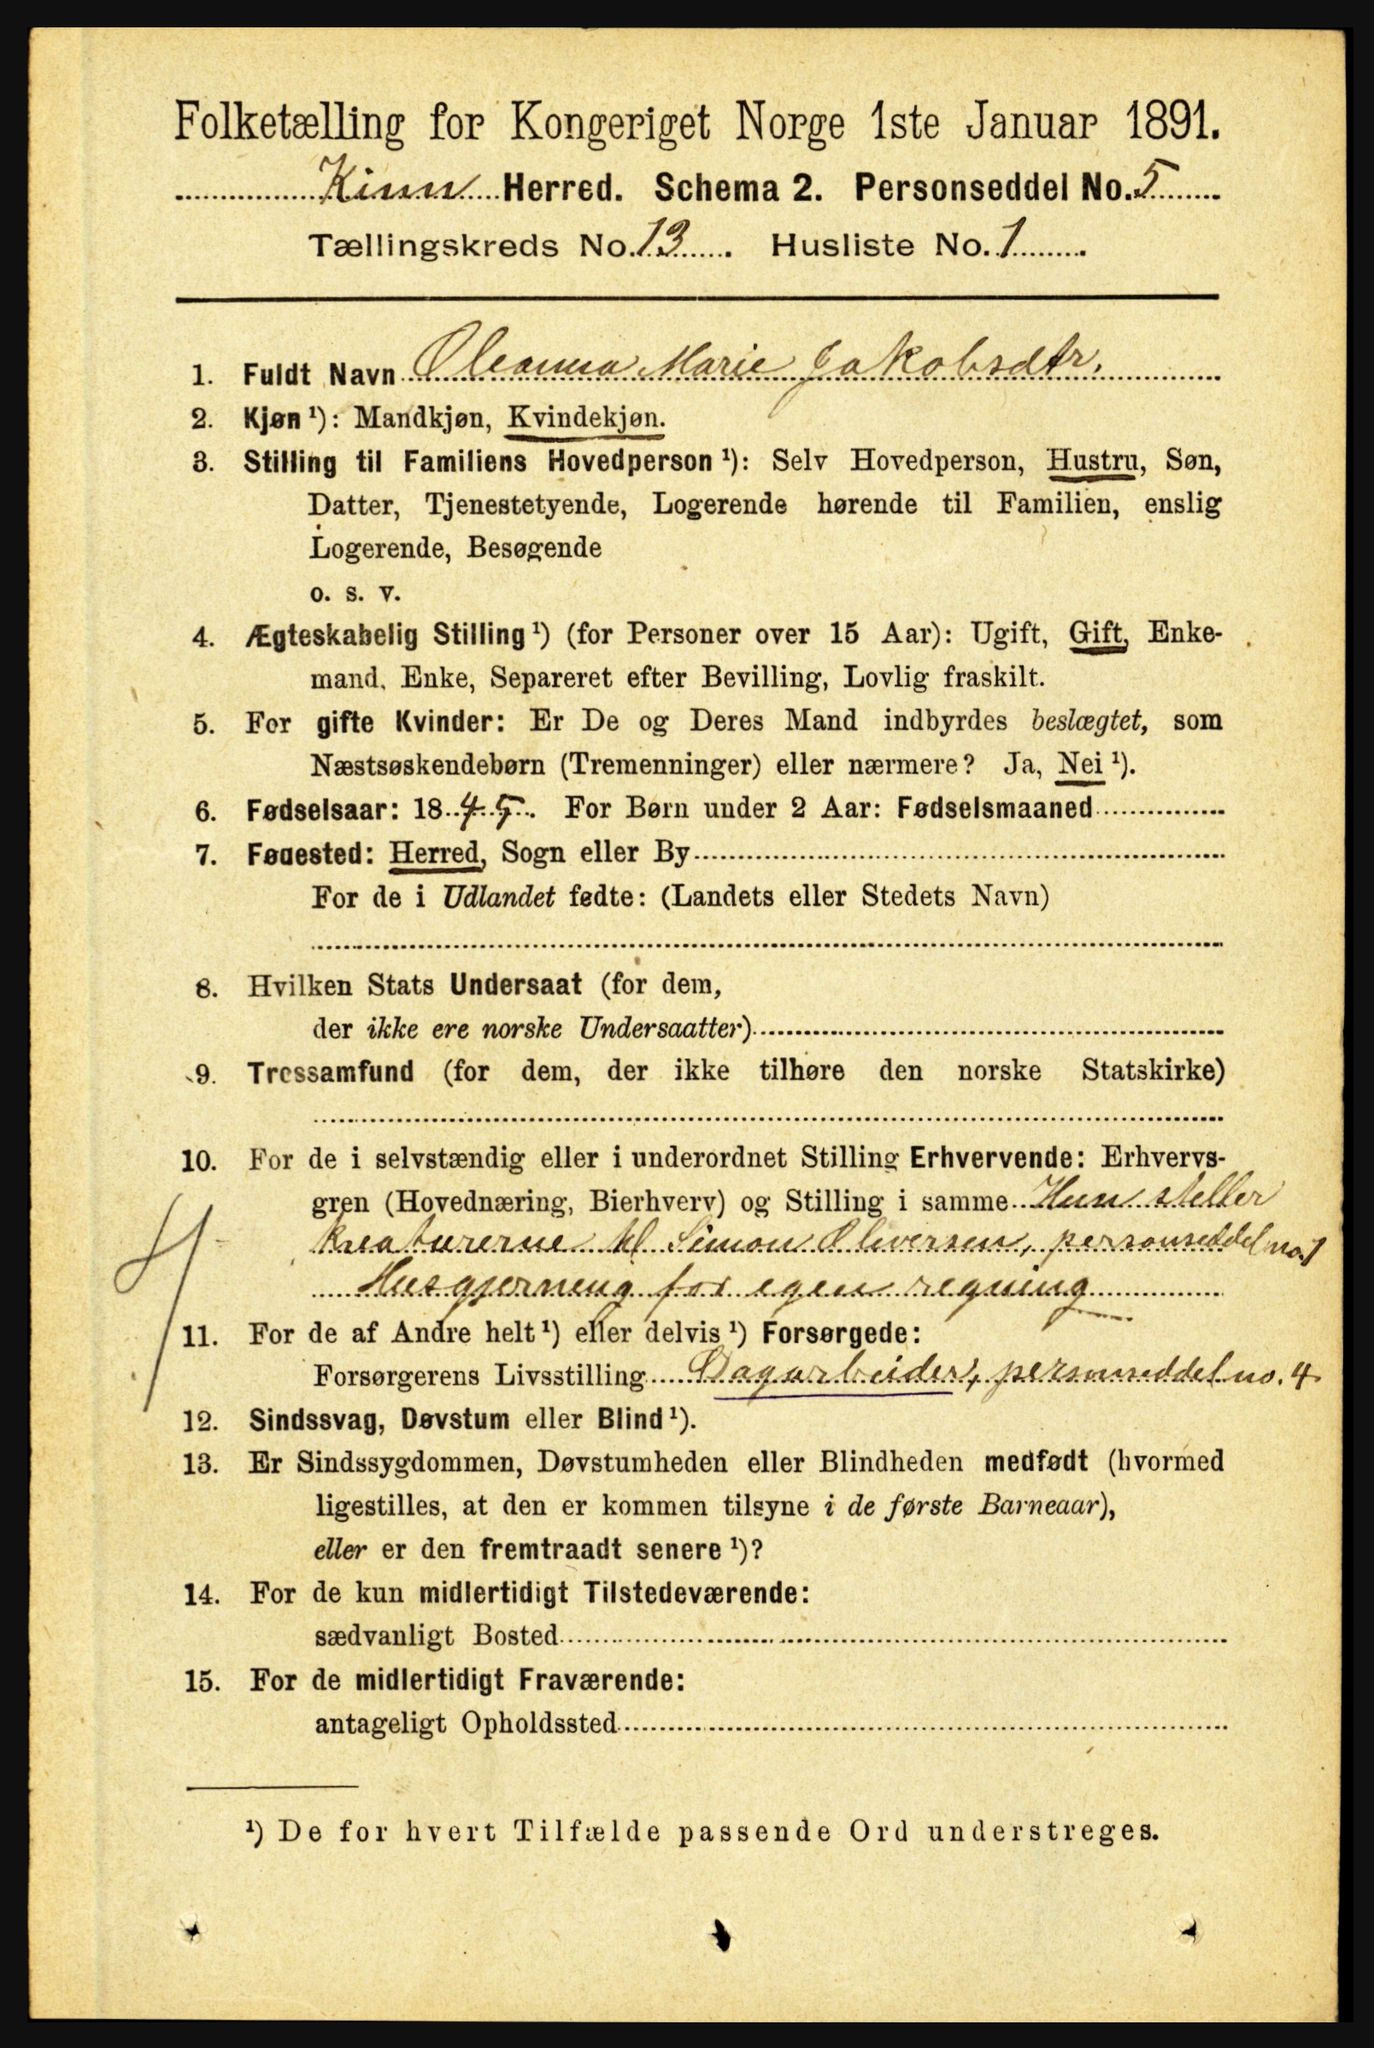 Folketælling for Kongeriget Norge 1ste Januar 1891.
Kinn Herred. Schema 2. Personseddel No. 5
Tællingskreds No. 13. Husliste No. 1
1. Fuldt Navn Oleanna Marie Jakobsdtr.
2. Kjøn ¹): Mandkjøn, Kvindekjøn.
3. Stilling til Familiens Hovedperson ¹): Selv Hovedperson, Hustru, Søn,
Datter, Tjenestetyende, Logerende hørende til Familien, enslig
Logerende, Besøgende
o. s. v.
4. Ægteskabelig Stilling ¹) (for Personer over 15 Aar): Ugift, Gift, Enke-
mand, Enke, Separeret efter Bevilling, Lovlig fraskilt.
5. For gifte Kvinder: Er De og Deres Mand indbyrdes beslægtet, som
Næstsøskendebørn (Tremenninger) eller nærmere? Ja, Nei ¹).
6. Fødselsaar: 1845. For Børn under 2 Aar: Fødselsmaaned
7. Fødested: Herred, Sogn eller By
For de i Udlandet fødte: (Landets eller Stedets Navn)
8. Hvilken Stats Undersaat (for dem,
der ikke ere norske Undersaatter)
9. Trossamfund (for dem, der ikke tilhøre den norske Statskirke)
10. For de i selvstændig eller i underordnet Stilling Erhvervende: Erhvervs-
gren (Hovednæring, Bierhverv) og Stilling i samme Hun steller
kreaturerne til Simon Oliversen, personseddel no. 1
Husgjerning for egen regning
11. For de af Andre helt ¹) eller delvis ¹) Forsørgede:
Forsørgerens Livsstilling Dagarbeider, personseddel no. 4
12. Sindssvag, Døvstum eller Blind ¹).
13. Er Sindssygdommen, Døvstumheden eller Blindheden medfødt (hvormed
ligestilles, at den er kommen tilsyne i de første Barneaar),
eller er den fremtraadt senere ¹)?
14. For de kun midlertidigt Tilstedeværende:
sædvanligt Bosted
15. For de midlertidigt Fraværende:
antageligt Opholdssted
¹) De for hvert Tilfælde passende Ord understreges.